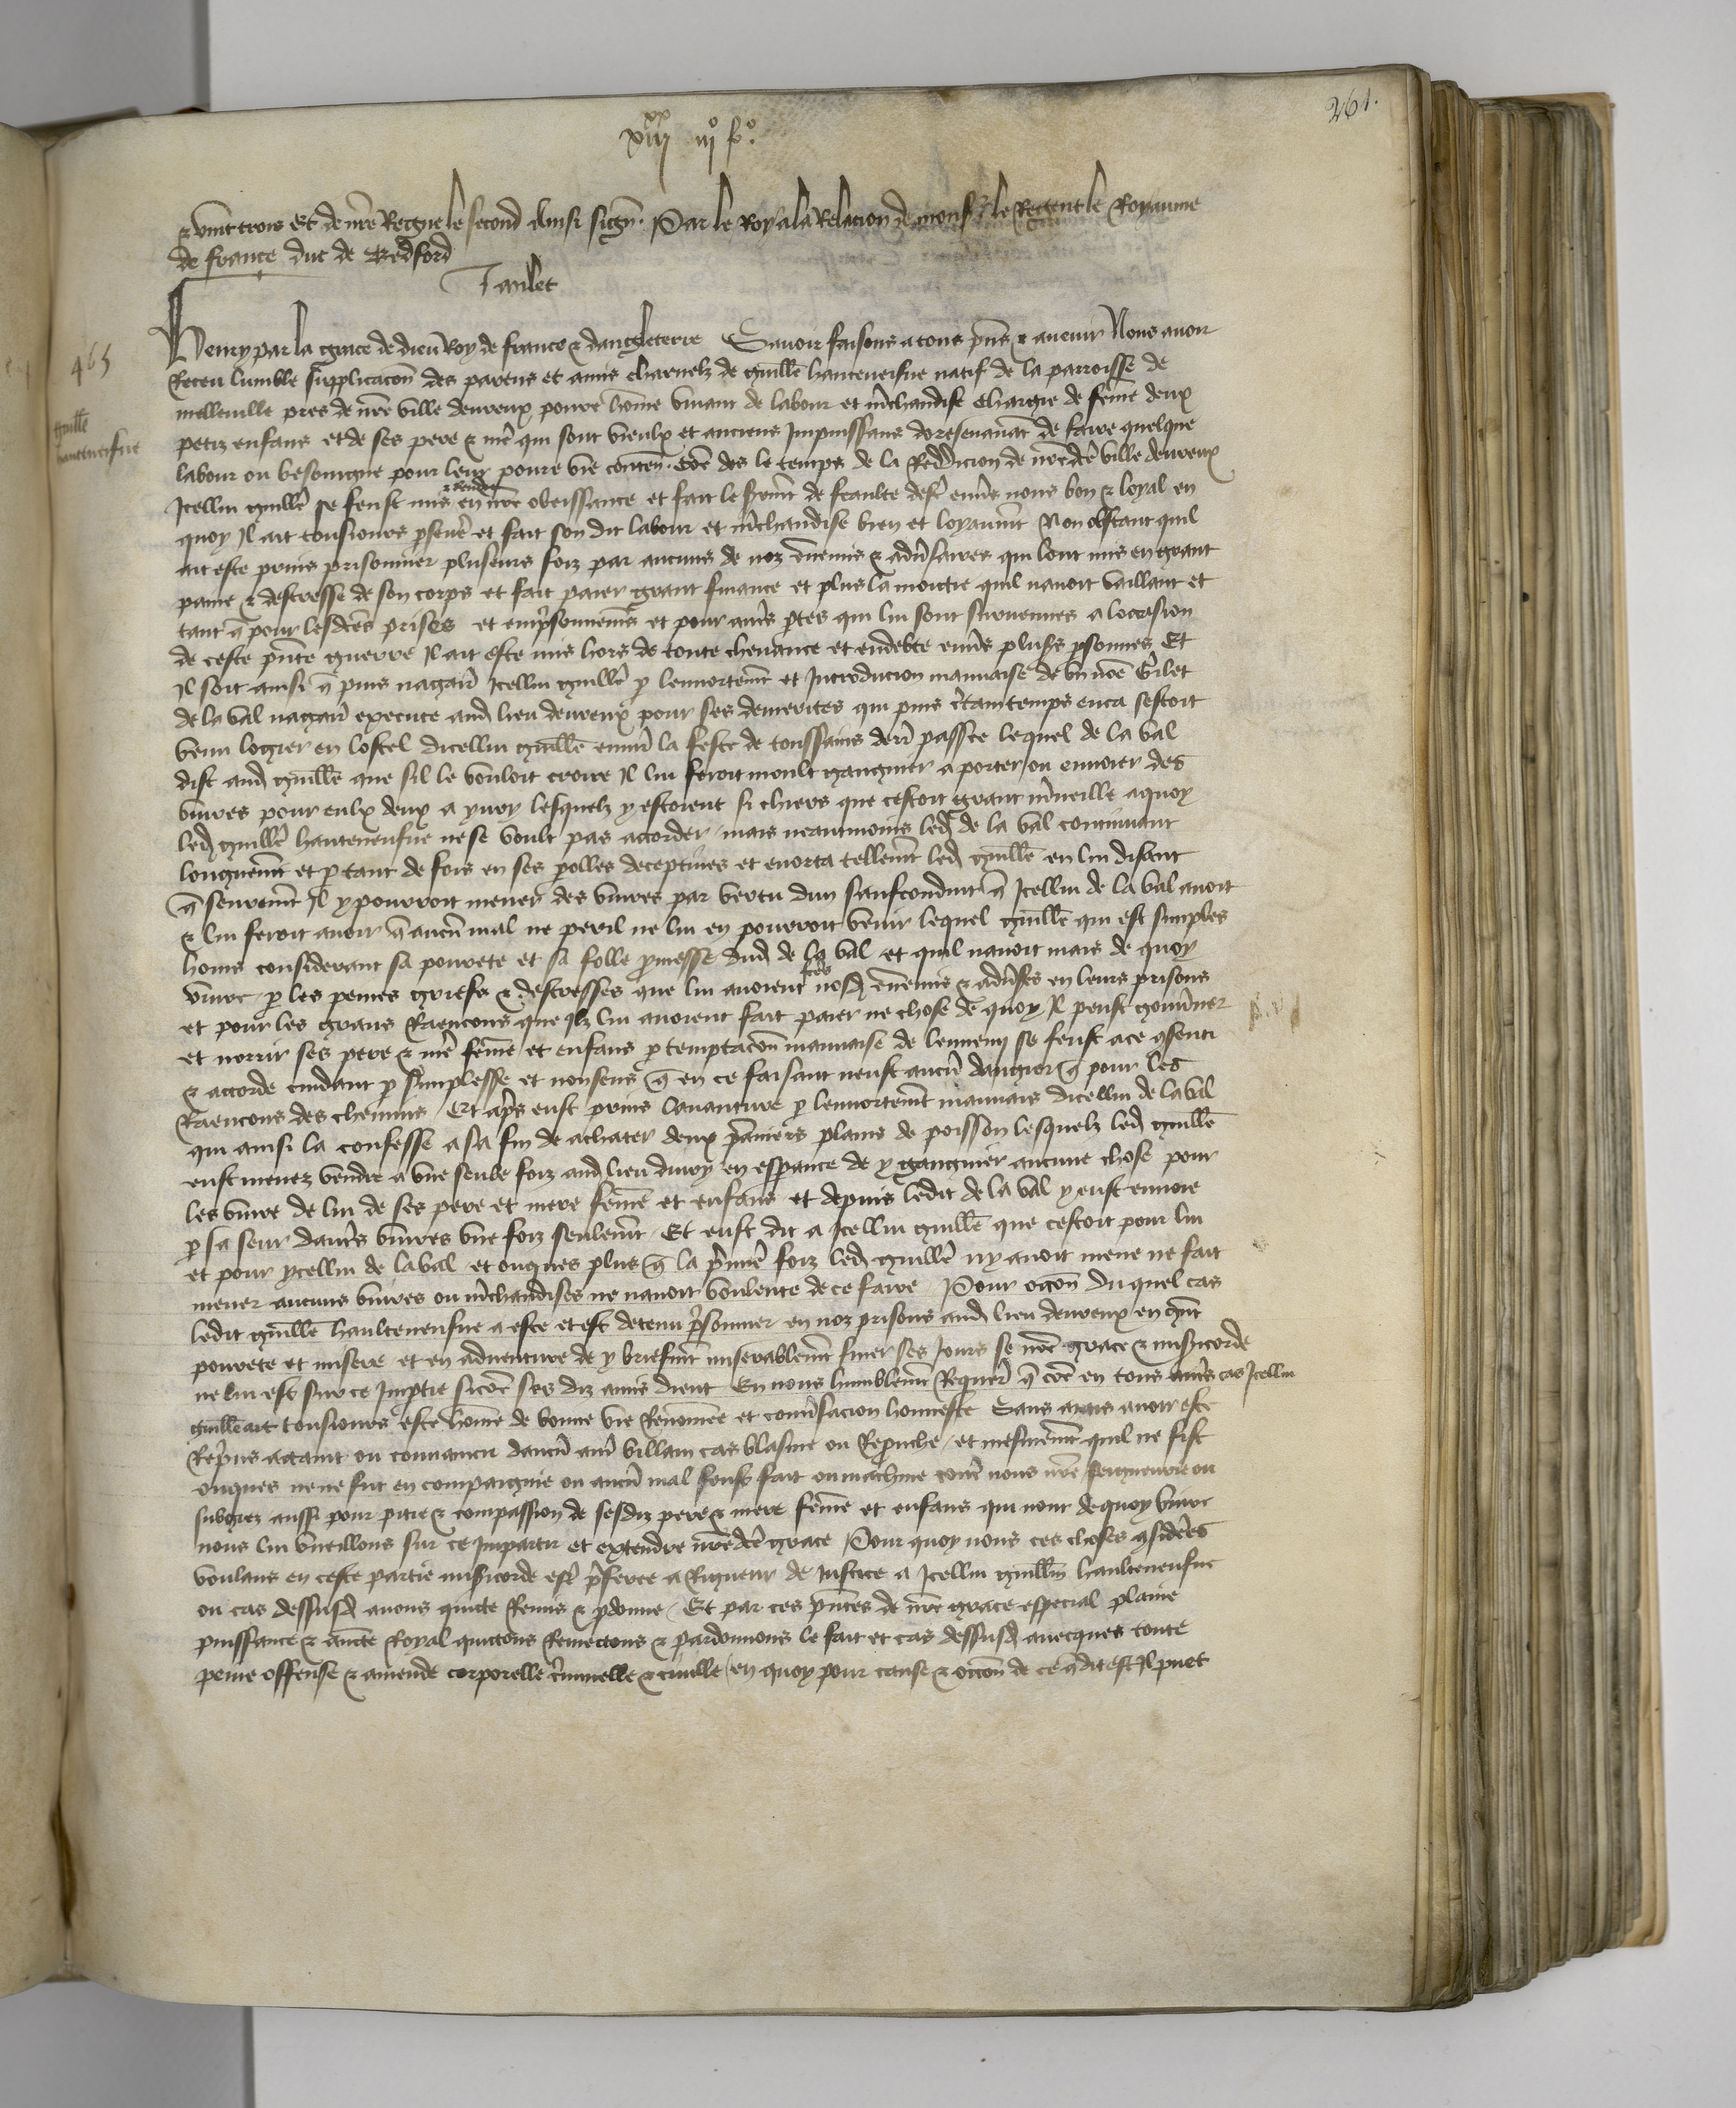 261.
xiii xx iij o fo.
& vint trois Et de nre Regne le second Ainsi sign. Par le Roy a la Relacion de mons le Regent le Royaume
de france duc de Bedford
Tanlet
465
guille hauteneufue
Henry par la grace de dieu Roy de france & dangleterre Savoir faisons a tous pns & avenir Nous avoir
Receu lumble supplicacon des parens et amis charnelz de guille hauteneufue natif de la parroisse de
melleville pres de nre ville devreux povre home vivant de labour et mchandise chargie de feme deux
petiz enfans et de ses pere & me qui sont vieulx et anciens Impuissans doresenavat de faire quelque
labour ou besoingne pour leur povre vie conten. Come des le temps de la Reddicion de nre dce ville devreux
Icellui guille se feust mis & Rendu en nre obeissance et fait le sermt de feaulte destre envs nous bon & loyal en
quoy Il ait tousiours pseve et fait son dit labour et mchandise bien et loyaumt Non obstant quil
ait este prins prisonnier pluseurs foiz par aucuns de noz ennemis & advsaires qui lont mis en grant
paine & destresse de son corps et fait paier grant finance et plus la moictie quil navoit vaillant et
tant q pour lesdces prises et emprisonnemes et pour aues ptes qui lui sont survenues a loccasion
de ceste pnte guerre Il ait este mis hors de toute chevance et endebte envs pluss psonnes Et
Il soit ainsi q puis nagair Icellui guille p lennortemt et Introducion mauvaise de un nome Gilet
de la val nagair execute aud lieu devreux pour ses demerites qui puis ctain temps enca sestoit
venu logier en lostel dicellui guille environ la feste de toussains deri passee lequel de la val
dist aud guille que sil le vouloit croire Il lui feroit moult gangner a porter ou envoier des
vivres pour eulx deux a yvry lesquelz y estoient si chiers que cestoit grant mveille a quoy
led guille hauteneufue ne se voult pas accorder / mais neantmoins led de la val continuant
longuemt et p tant de fois en ses polles deceptives et enorta tellemt led guille en lui disant
q seuremt Il y pourroit mener des vivres par vertu dun saufconduit q Icellui de la val avoit
& lui feroit avoir q aucun mal ne peril ne lui en pourroit venir lequel guille qui est simples
homs considerant sa povrete et sa folle pmesse dud de la val et quil navoit mais de quoy
vivre / p les peines griefs & destresses que lui avoient fces nosd ennemis & advses en leurs prisons
et pour les grans Raencons que Ilz lui avoient fait paier ne chose de quoy Il peust gouvner
et norrir ses pere & me feme et enfans p temptacon mauvaise de lennemy se feust a ce qsenti
& accorde cuidant p simplesse et nonsens q en ce faisant neust aucu dangier q pour les
Raencons des chemins / Et aps eust prins lavanture p lennortemt mauvais dicellui de la val
qui ainsi la confesse a sa fin de achater deux paniers plains de poisson lesquelz led guille
eust menez vendre a une seule foiz aud lieu divry en espance de y gangnier aucune chose pour
les vivre de lui de ses pere et mere feme et enfans et depuis ledit de la val y eust envoie
p sa seur dautres vivres une foiz seulemt / Et eust dit a Icellui guille que cestoit pour lui
et pour ycellui de la val et onques plus q la pmie foiz led guille ny avoit mene ne fait
mener aucuns vivres ou mchandises ne navoit voulente de ce faire / Pour occon du quel cas
ledit guille haulteneufue a este et est detenu prisonnier en noz prisons aud lieu devreux en grt
povrete et misere et en adventure de y briefmt miserablemt finer ses Jours se nre grace & misicorde
ne lui est sur ce Imptie sicome ses diz amis dient En nous humblemt Requer q come en tous aues cas Icellui
guille ait tousiours este home de bonne vie Renomee et convsacion honneste Sans avoir este
Repris actaint ou convaincu daucu aue villain cas blasme ou Reprouche / et mesmemt quil ne fist
onques ne ne fut en compaignie ou aucu mal feust fait ou machine cont nous nre seigneurie ou
subgiez aussi pour pitie & compassion de sesdiz pere & mere feme et enfans qui nont de quoy vivre
nous lui vueillons sur ce Impartir et extendre nre dce grace / Pour quoy nous ces choses qsiderees
voulans en ceste partie misicorde est pferee a Rigueur de Justice a Icellui guille haulteneufue
ou cas dessusd avons quicte Remis & pdonne / Et par ces pntes de nre grace especial plaine
puissance & aucte Royal quictons Remectons & pardonnons le fait et cas dessusd avecques toute
peine offense & amende corporelle cminelle & civille / en quoy pour cause & occon de ce q dit est Il puet